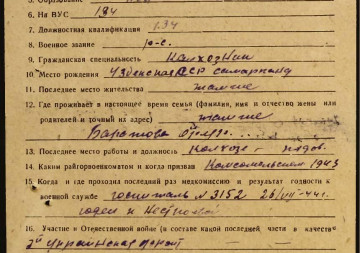 6. На ВУС 134
7. Должностная квалификация 134
8. Военное звание р-с.
9. Гражданская специальность Колхозник
10. Место рождения Узбекская ССР Самарканд
11. Последнее место жительства тамже
12. Где проживает в настоящее время семья (фамилия, имя и отчество жены или
родителей и точный их адрес) тамже
Баратова
13. Последнее место работы и должность колхоз —
14. Каким райгорвоенкоматом и когда призван Комсомольским 1943
15. Когда и где проходил последний раз медкомиссию и результат годности к
военной службе госпиталь № 3152 26/VII-44г.
годен к нестроевой
16. Участие в Отечественной войне (в составе какой последней части в качестве
Украинская фронт